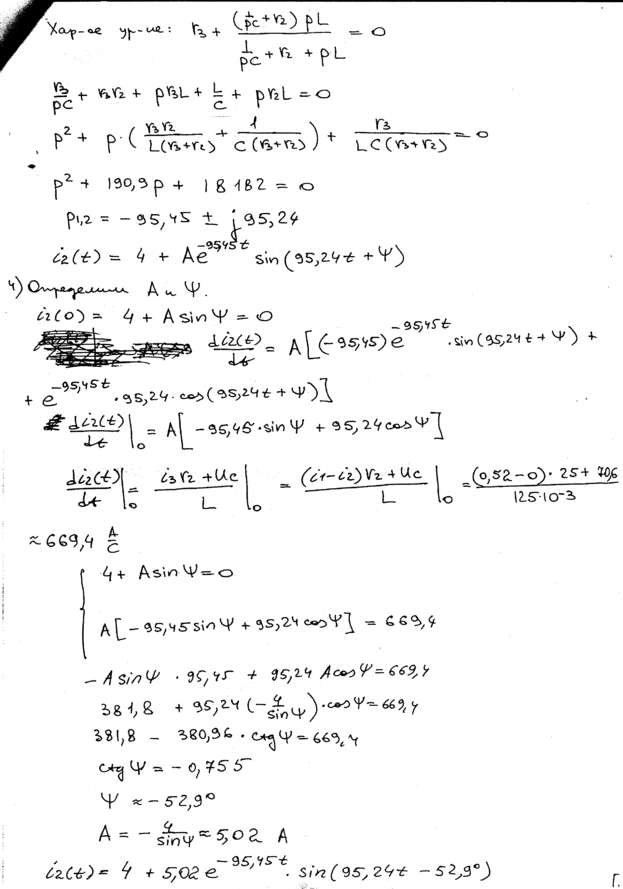 Хар-ое ур-ие: r3 + ((1/pC + r2) pL)/(1/pC + r2 + pL) = 0
r3/pC + r3r2 + pr3L + L/C + pr2L = 0
p² + p·(r3r2/(L(r3+r2)) + 1/(C(r3+r2))) + r3/(LC(r3+r2)) = 0
p² + 190,9p + 18182 = 0
p1,2 = -95,45 ± j95,24
i2(t) = 4 + Ae^(-95,45t) sin(95,24t + Ψ)
4) Определим A и Ψ.
i2(0) = 4 + A sinΨ = 0
di2(t)/dt = A[(-95,45)e^(-95,45t)·sin(95,24t + Ψ) +
+ e^(-95,45t)·95,24·cos(95,24t + Ψ)]
di2(t)/dt|0 = A[-95,45·sinΨ + 95,24cosΨ]
di2(t)/dt|0 = (i3r2 + Uc)/L|0 = ((i1-i2)r2 + Uc)/L|0 = ((0,52-0)·25 + 70,6)/(125·10-3)
≈ 669,4 A/C
4 + A sinΨ = 0
A[-95,45sinΨ + 95,24cosΨ] = 669,4
-A sinΨ · 95,45 + 95,24 A cosΨ = 669,4
381,8 + 95,24(-4/sinΨ)·cosΨ = 669,4
381,8 - 380,96·ctgΨ = 669,4
ctgΨ = -0,755
Ψ ≈ -52,9°
A = -4/sinΨ ≈ 5,02 A
i2(t) = 4 + 5,02e^(-95,45t)·sin(95,24t - 52,9°)
Г.